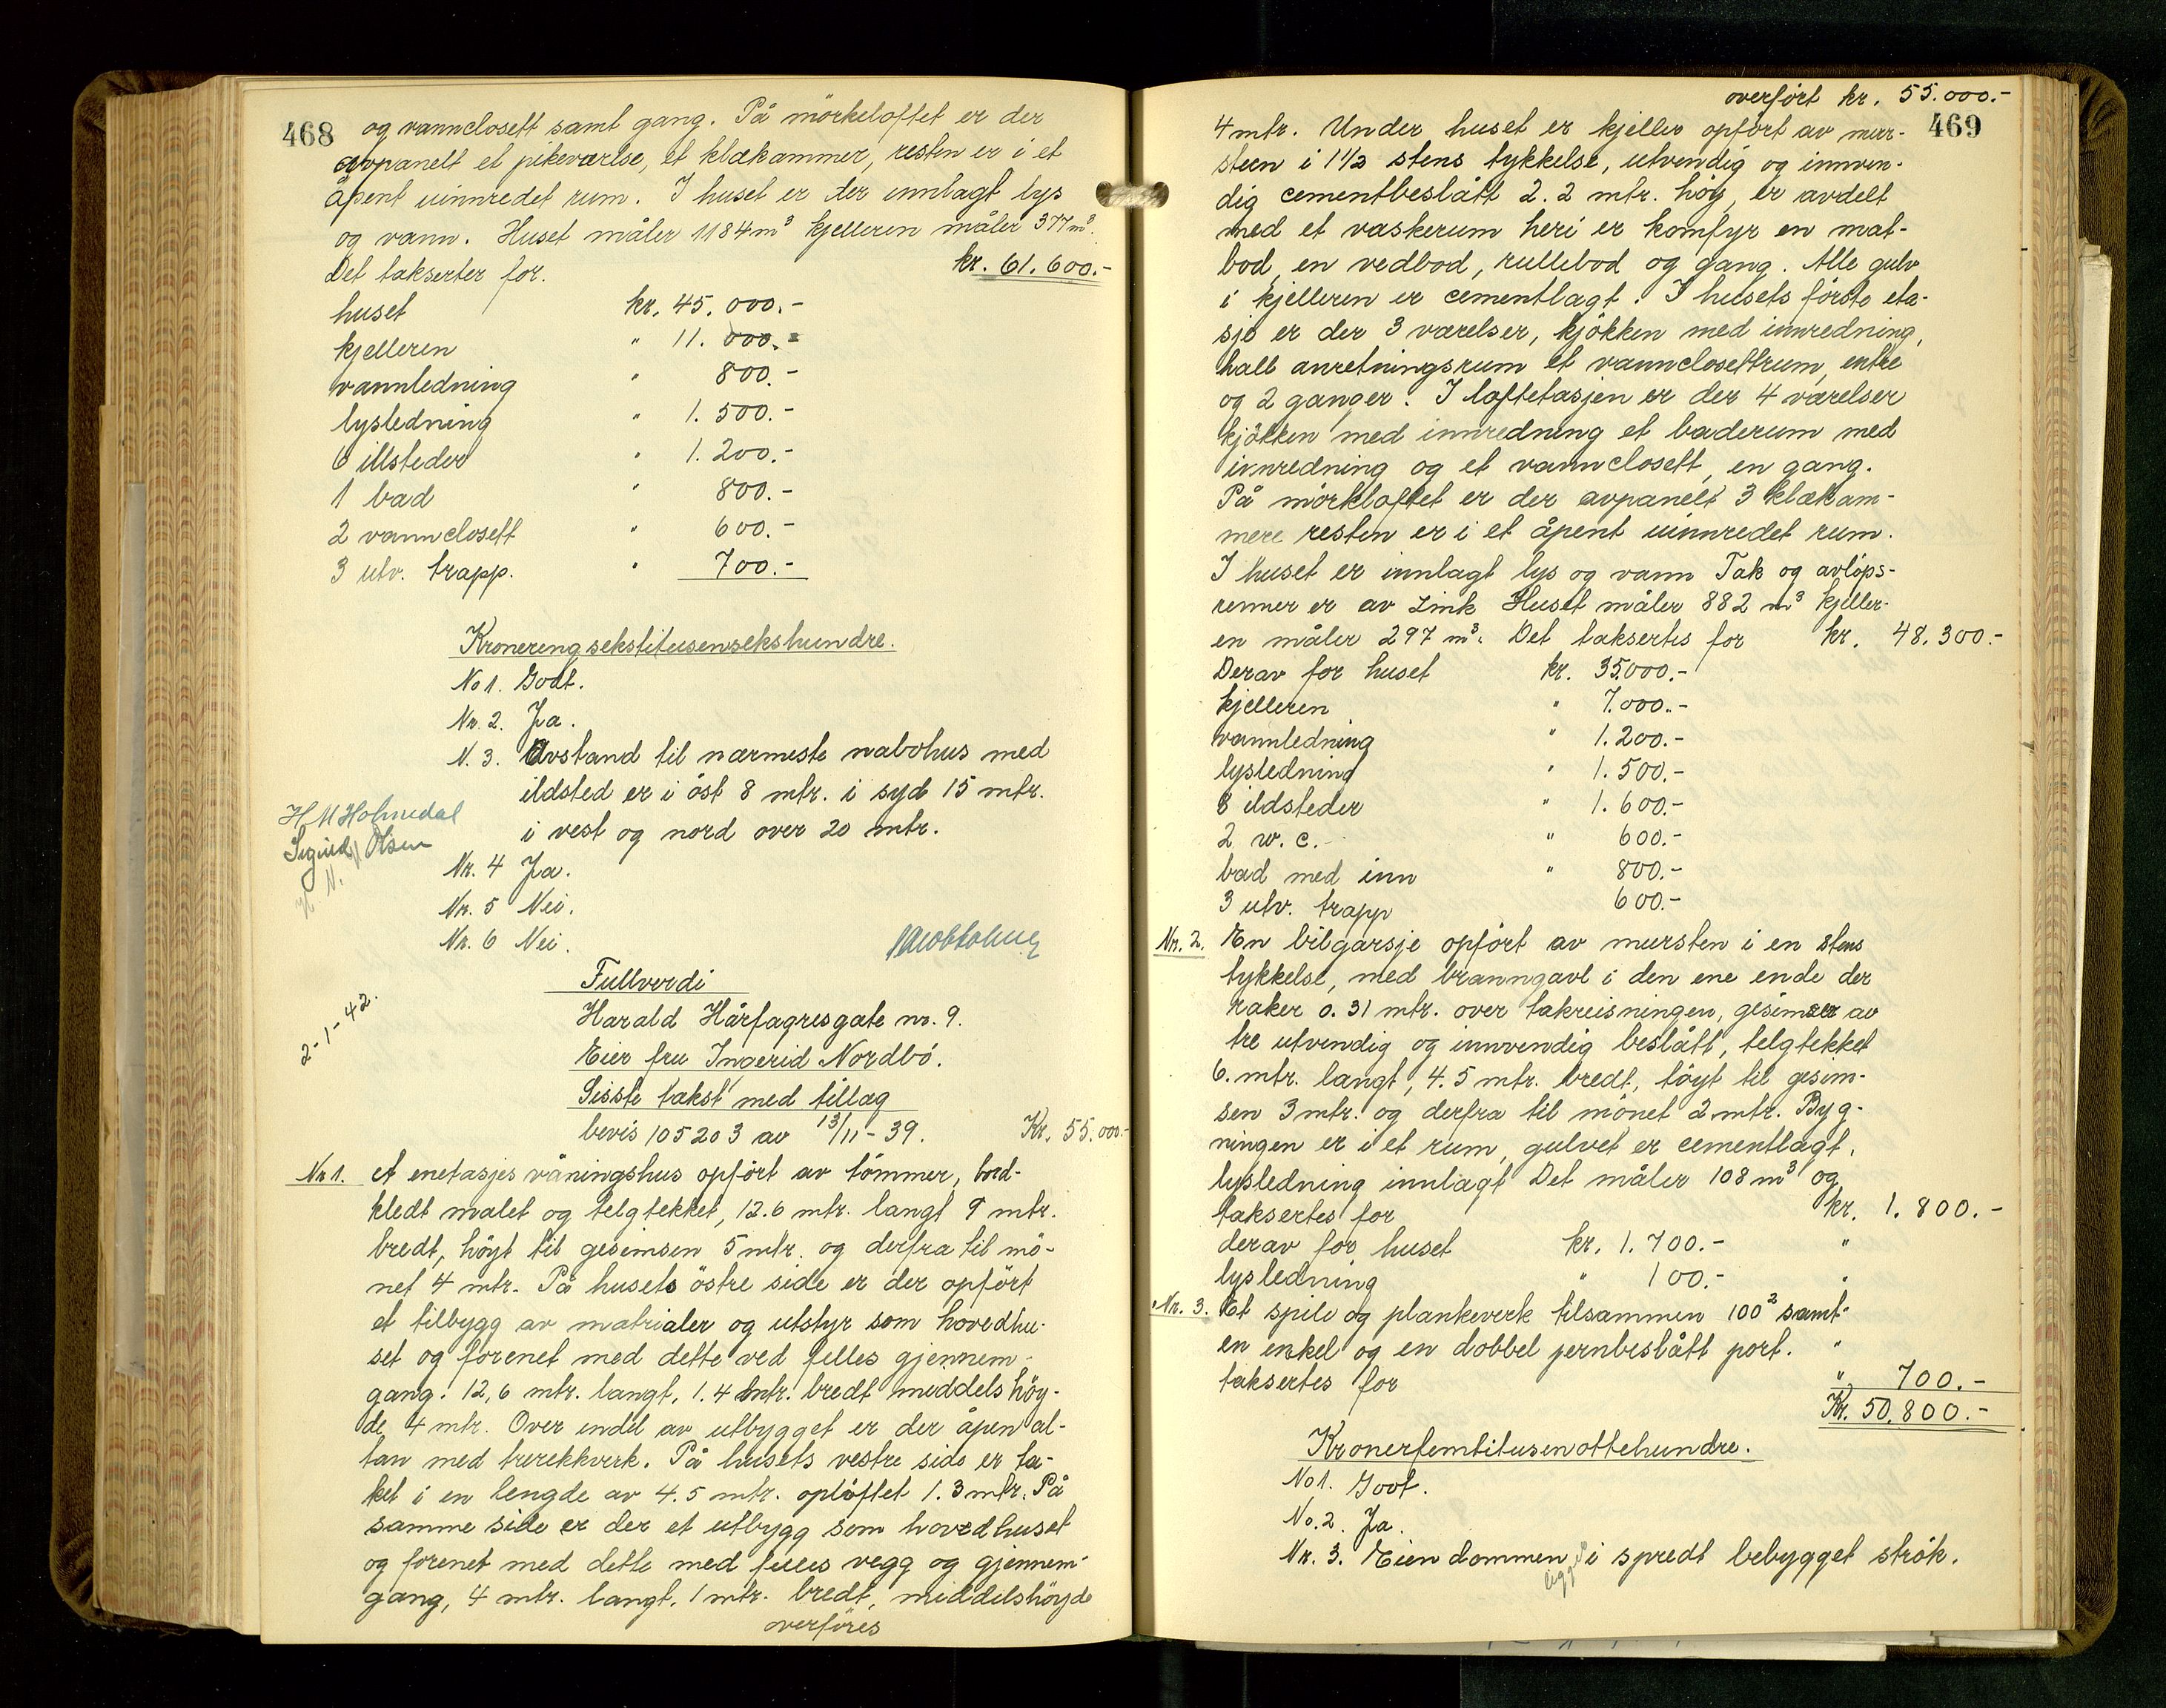 468
og vannclosett samt gang. På mörkeloftet er der
avpanelt et pikeværlse, et klækammer, resten er i et
åpent uinnredet rum. I huset er der innlagt lys
og vann. Huset måler 1184 m³ kjelleren måler 377 m³.
Det takserter for. kr. 61.600.-
huset kr. 45.000.-
kjelleren " 11.000.-
vannledning " 800.-
lysledning " 1.500.-
6 illsteder " 1.200.-
1 bad " 800.-
2 vannclosett " 600.-
3 utv. trapp. " 700.-
Kronerengsekstitusensekshundre.
No 1. Godt.
Nr. 2. Ja.
N. 3. Avstand til nærmeste nabohus med
ildsted er i öst 8 mtr. i syd 15 mtr.
i vest og nord over 20 mtr.
H M Holmedal
Sigurd Olsen
Nr. 4 Ja.
Nr. 5 Nei.
Nr. 6 Nei.
Fullverdi
2-1-42.
Harald Hårfagresgate nr. 9.
Eier fru Ingerid Nordbö.
Sisste takst med tillæg
bevis 105203 av 13/11-39. Kr. 55.000.-
Nr 1. et enetasjes våningshus opfört av tömmer, bord-
kledt malet og telgtekket, 12.6 mtr. langt 9 mtr.
bredt, höyt til gesemsen 5 mtr. og derfra til mö-
net 4 mtr. På husets östre side er der opfört
et tilbygg av matrialer og utstyr som hovedhu-
set og forenet med dette ved felles gjennem-
gang. 12,6 mtr. langt, 1.4 mtr. bredt middels höy-
de 4 mtr. Over endel av utbygget er der åpen al-
tan med trerekkverk. På husets vestre side er ta-
ket i en lengde av 4.5 mtr. oplöftet 1.3 mtr. På
samme side er der et utbygg som hovedhuset
og forenet med dette med felles vegg og gjennem-
gang, 4 mtr. langt, 1 mtr. bredt, middelshöyde
overföres
overfört kr. 55.000.-
469
4 mtr. Under huset er kjeller opfört av mur-
steen i 1 1/2 stens tykkelse, utvendig og innven-
dig cementbeslått 2.2 mtr. höy, er avdelt
med et vaskerum heri er komfyr en mat-
bod, en vedbod, rullebod og gang. Alle gulv
i kjelleren er cementlagt. I husets förste eta-
sje er der 3 værelser, kjökken med innredning,
hall anretningsrum et vannclosettrum, entre
og 2 ganger. I loftetasjen er der 4 værelser
kjökken med innredning et baderum med
innredning og et vannclosett, en gang.
På mörkloftet er der avpanelt 3 klækam-
mere resten er i et åpent uinnredet rum.
I huset er innlagt lys og vann Tak og avlöps-
renner er av zink Huset måler 882 m³ kjeller-
en måler 297 m³. Det taksertes for kr. 48.300.-
Derav for huset kr. 35.000.-
kjelleren " 7.000.-
vannledning " 1.200.-
lysledning " 1.500.-
8 ildsteder " 1.600.-
2 w. c. " 600.-
bad med inn " 800.-
3 utv. trapp 600.-
Nr. 2. En bilgarsje opfört av mursten i en stens
tykkelse, med branngavl i den ene ende der
raker 0.31 mtr. over takreisningen, gesimser av
tre utvendig og innvendig beslått, telgtekket
6. mtr. langt, 4.5 mtr. bredt, höyt til gesim-
sen 3 mtr. og derfra til mönet 2 mtr. Byg-
ningen er i et rum, gulvet er cementlagt.
lysledning innlagt Det måler 108 m³ og
taksertes for kr. 1.800.-
derav for huset kr. 1.700.- "
lysledning " 100.- "
Nr. 3. Et spile og plankeverk tilsammen 100² samt "
en enkel og en dobbel jernbeslått port. "
taksertes for " 700.-
Kr. 50.800.-
Kronerfemtitusenottehundre.
No 1. Godt.
No. 2. Ja.
Nr. 3. Eiendommen ligger i spredt bebygget strök.